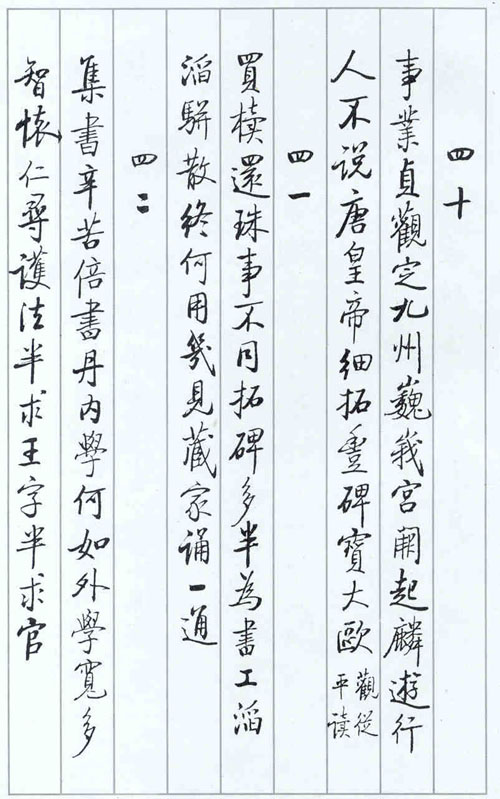 四十
事業貞觀定九州巍峩宮闕起麟遊行
人不说唐皇帝細拓豐碑寶大歐觀從平读
四一
買櫝還珠事不同拓碑多半為書工滔
滔駢散終何用幾見藏家誦一通
四二
集書辛苦倍書丹內學何如外學寬多
智懷仁尋護法半求王字半求官